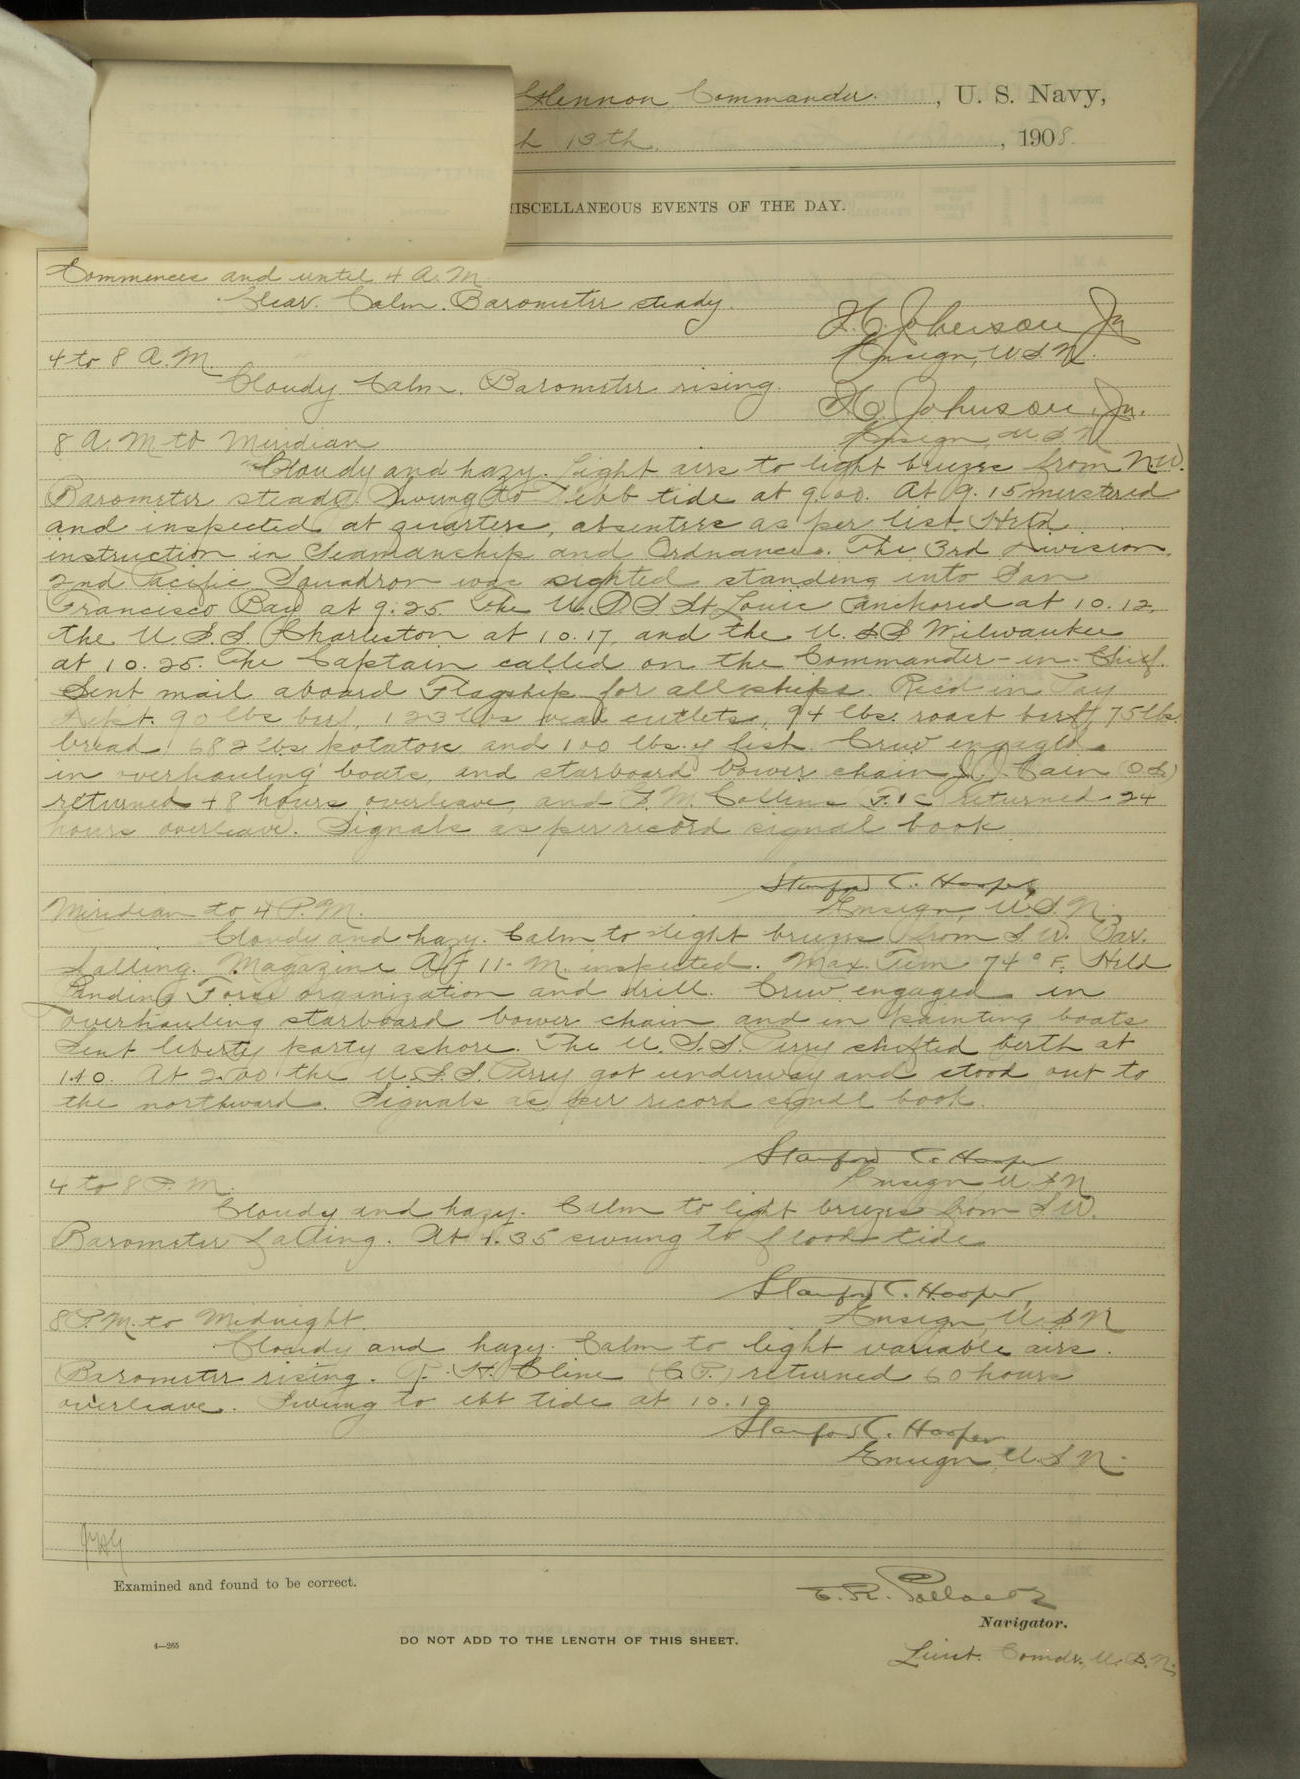 Glennon, Commander, U. S. Navy,
h 13th, 1908.
MISCELLANEOUS EVENTS OF THE DAY.
Commences and until 4 A.M.
Clear. Calm. Barometer steady.
Johnson Jr
Ensign, U.S.N.
4 to 8 A.M.
Cloudy Calm. Barometer rising.
Johnson, Jr.
Ensign U.S.N
8 A.M to Meridian
Cloudy and hazy. Light airs to light breezes from N.W.
Barometer steady. Swung to ebb tide at 9.00. At 9.15 mustered
and inspected at quarters, absentees as per list. Held
instruction in Seamanship and Ordnance. The 3rd Division,
2nd Pacific Squadron was sighted standing into San
Francisco Bay at 9.25 The U.S.S St Louis anchored at 10.12,
the U.S.S. Charleston at 10.17, and the U.S.S Milwaukee
at 10.25. The Captain called on the Commander-in-Chief.
Sent mail aboard Flagship for all ships. Rec'd in Pay
Dept. 90 lbs beef, 123 lbs veal cutlets, 94 lbs. roast beef, 75 lbs.
bread, 682 lbs potatoes and 100 lbs. of fish. Crew engaged
in overhauling boats, and starboard bower chain. Cain (OS)
returned 48 hours overleave, and F. M. Collins (F.1c) returned 24
hours overleave. Signals as per record signal book.
Stanford C. Hooper,
Ensign, U.S.N.
Meridian to 4 P.M.
Cloudy and hazy. Calm to slight breezes from S.W. Bar.
falling. Magazine A 11-M. inspected. Max. Tem 74° F. Held
Landing Force organization and drill. Crew engaged in
overhauling starboard bower chain, and in painting boats
Sent liberty party ashore. The U.S.S. Perry shifted berth at
1.40. At 2.00 the U.S.S. Perry got underway and stood out to
the northward. Signals as per record signal book.
Stanford C. Hooper
Ensign U.S.N
4 to 8 P.M.
Cloudy and hazy. Calm to light breezes from S.W.
Barometer falling. At 4.35 swung to flood tide
Stanford C. Hooper,
Ensign, U.S.N
8 P.M. to Midnight.
Cloudy and hazy. Calm to light variable airs.
Barometer rising. H. Cline (C.P.) returned 60 hours
overleave. Swung to ebb tide at 10.10
Stanford C. Hooper
Ensign, U.S.N.
Examined and found to be correct.
E. R. Pollock
Navigator.
4—265
DO NOT ADD TO THE LENGTH OF THIS SHEET.
Lieut. Comdr., U.S.N.